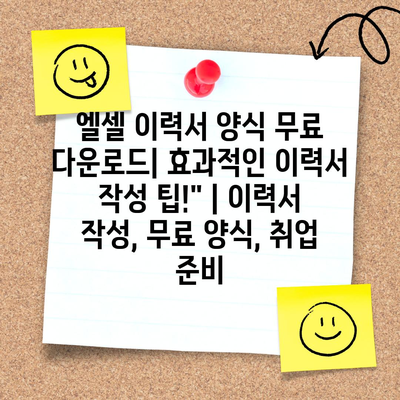 엘셀 이력서 양식 무료
다운로드| 효과적인 이력서
작성 팁!" | 이력서
작성, 무료 양식, 취업
준비